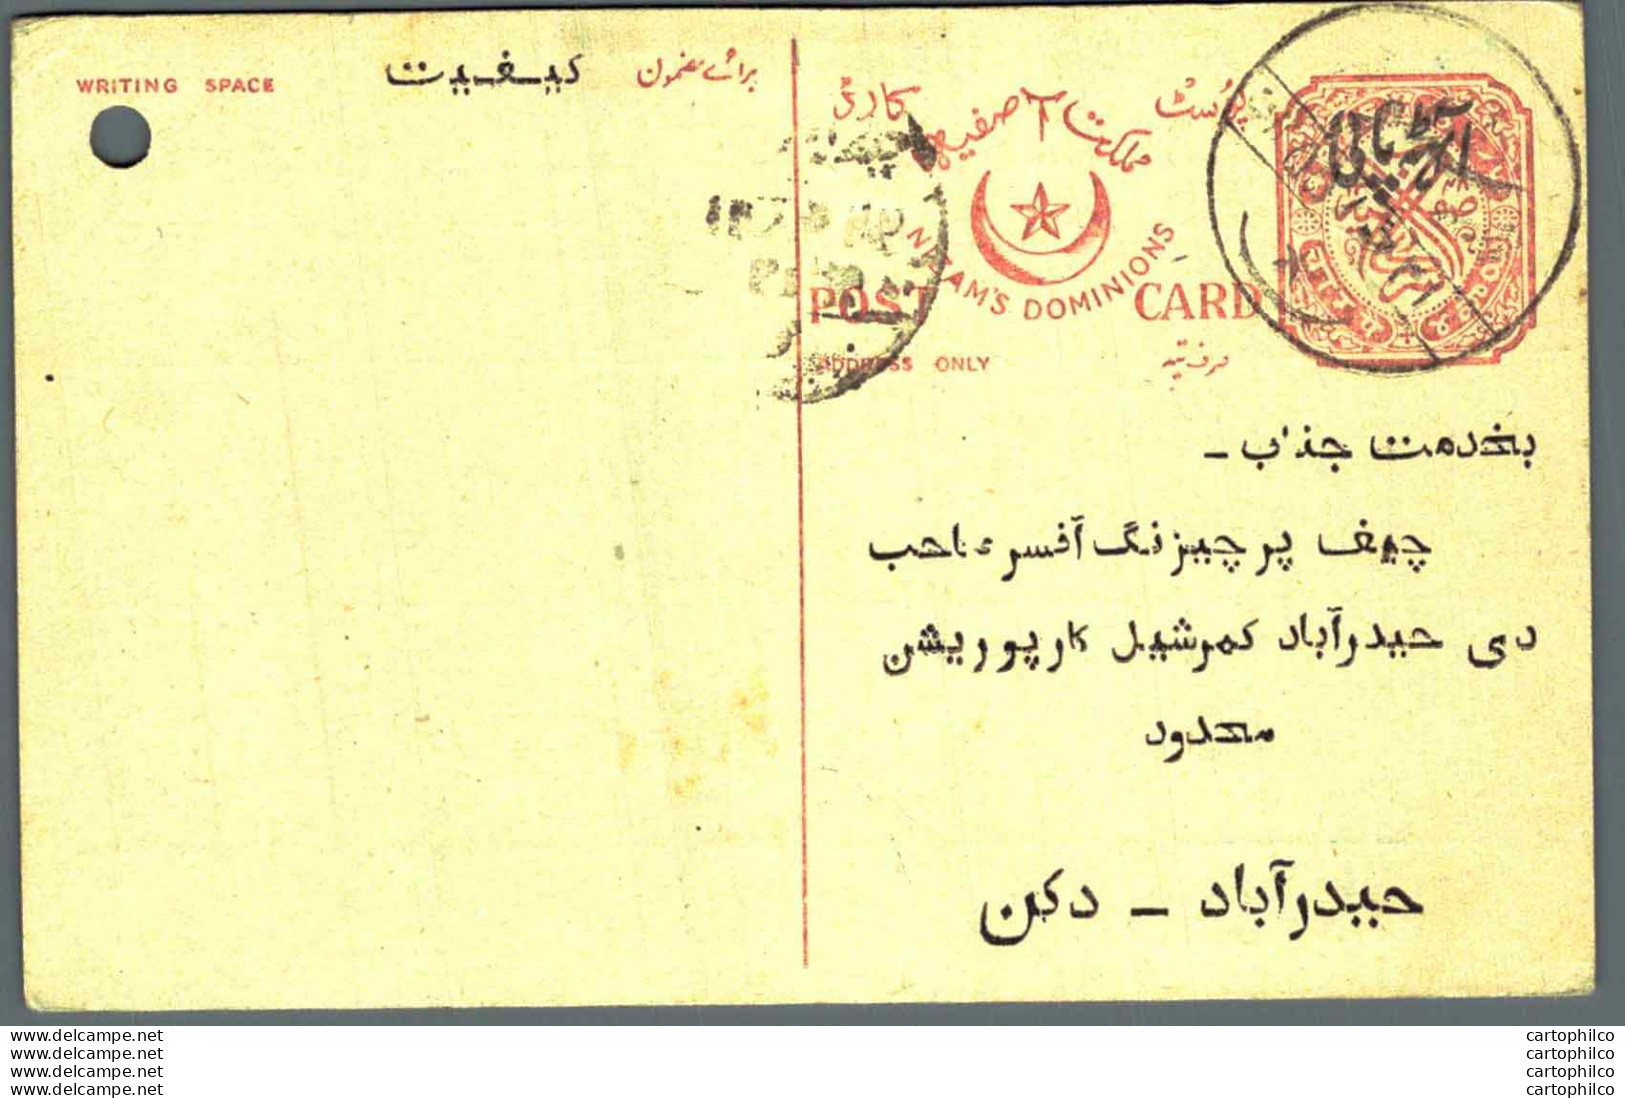 WRITING SPACE
کیفیت
برائے مضمون
پوسٹ کارڈ
مملکت آصفیہ
NIZAM'S DOMINIONS
POST CARD
ADDRESS ONLY
صرف پتہ
بخدمت جناب -
چیف پرچیزنگ آفسر صاحب
دی حیدرآباد کمرشیل کارپوریشن
محدود
حیدرآباد - دکن
www.delcampe.net
www.delcampe.net
www.delcampe.net
www.delcampe.net
cartophilco
cartophilco
cartophilco
cartophilco